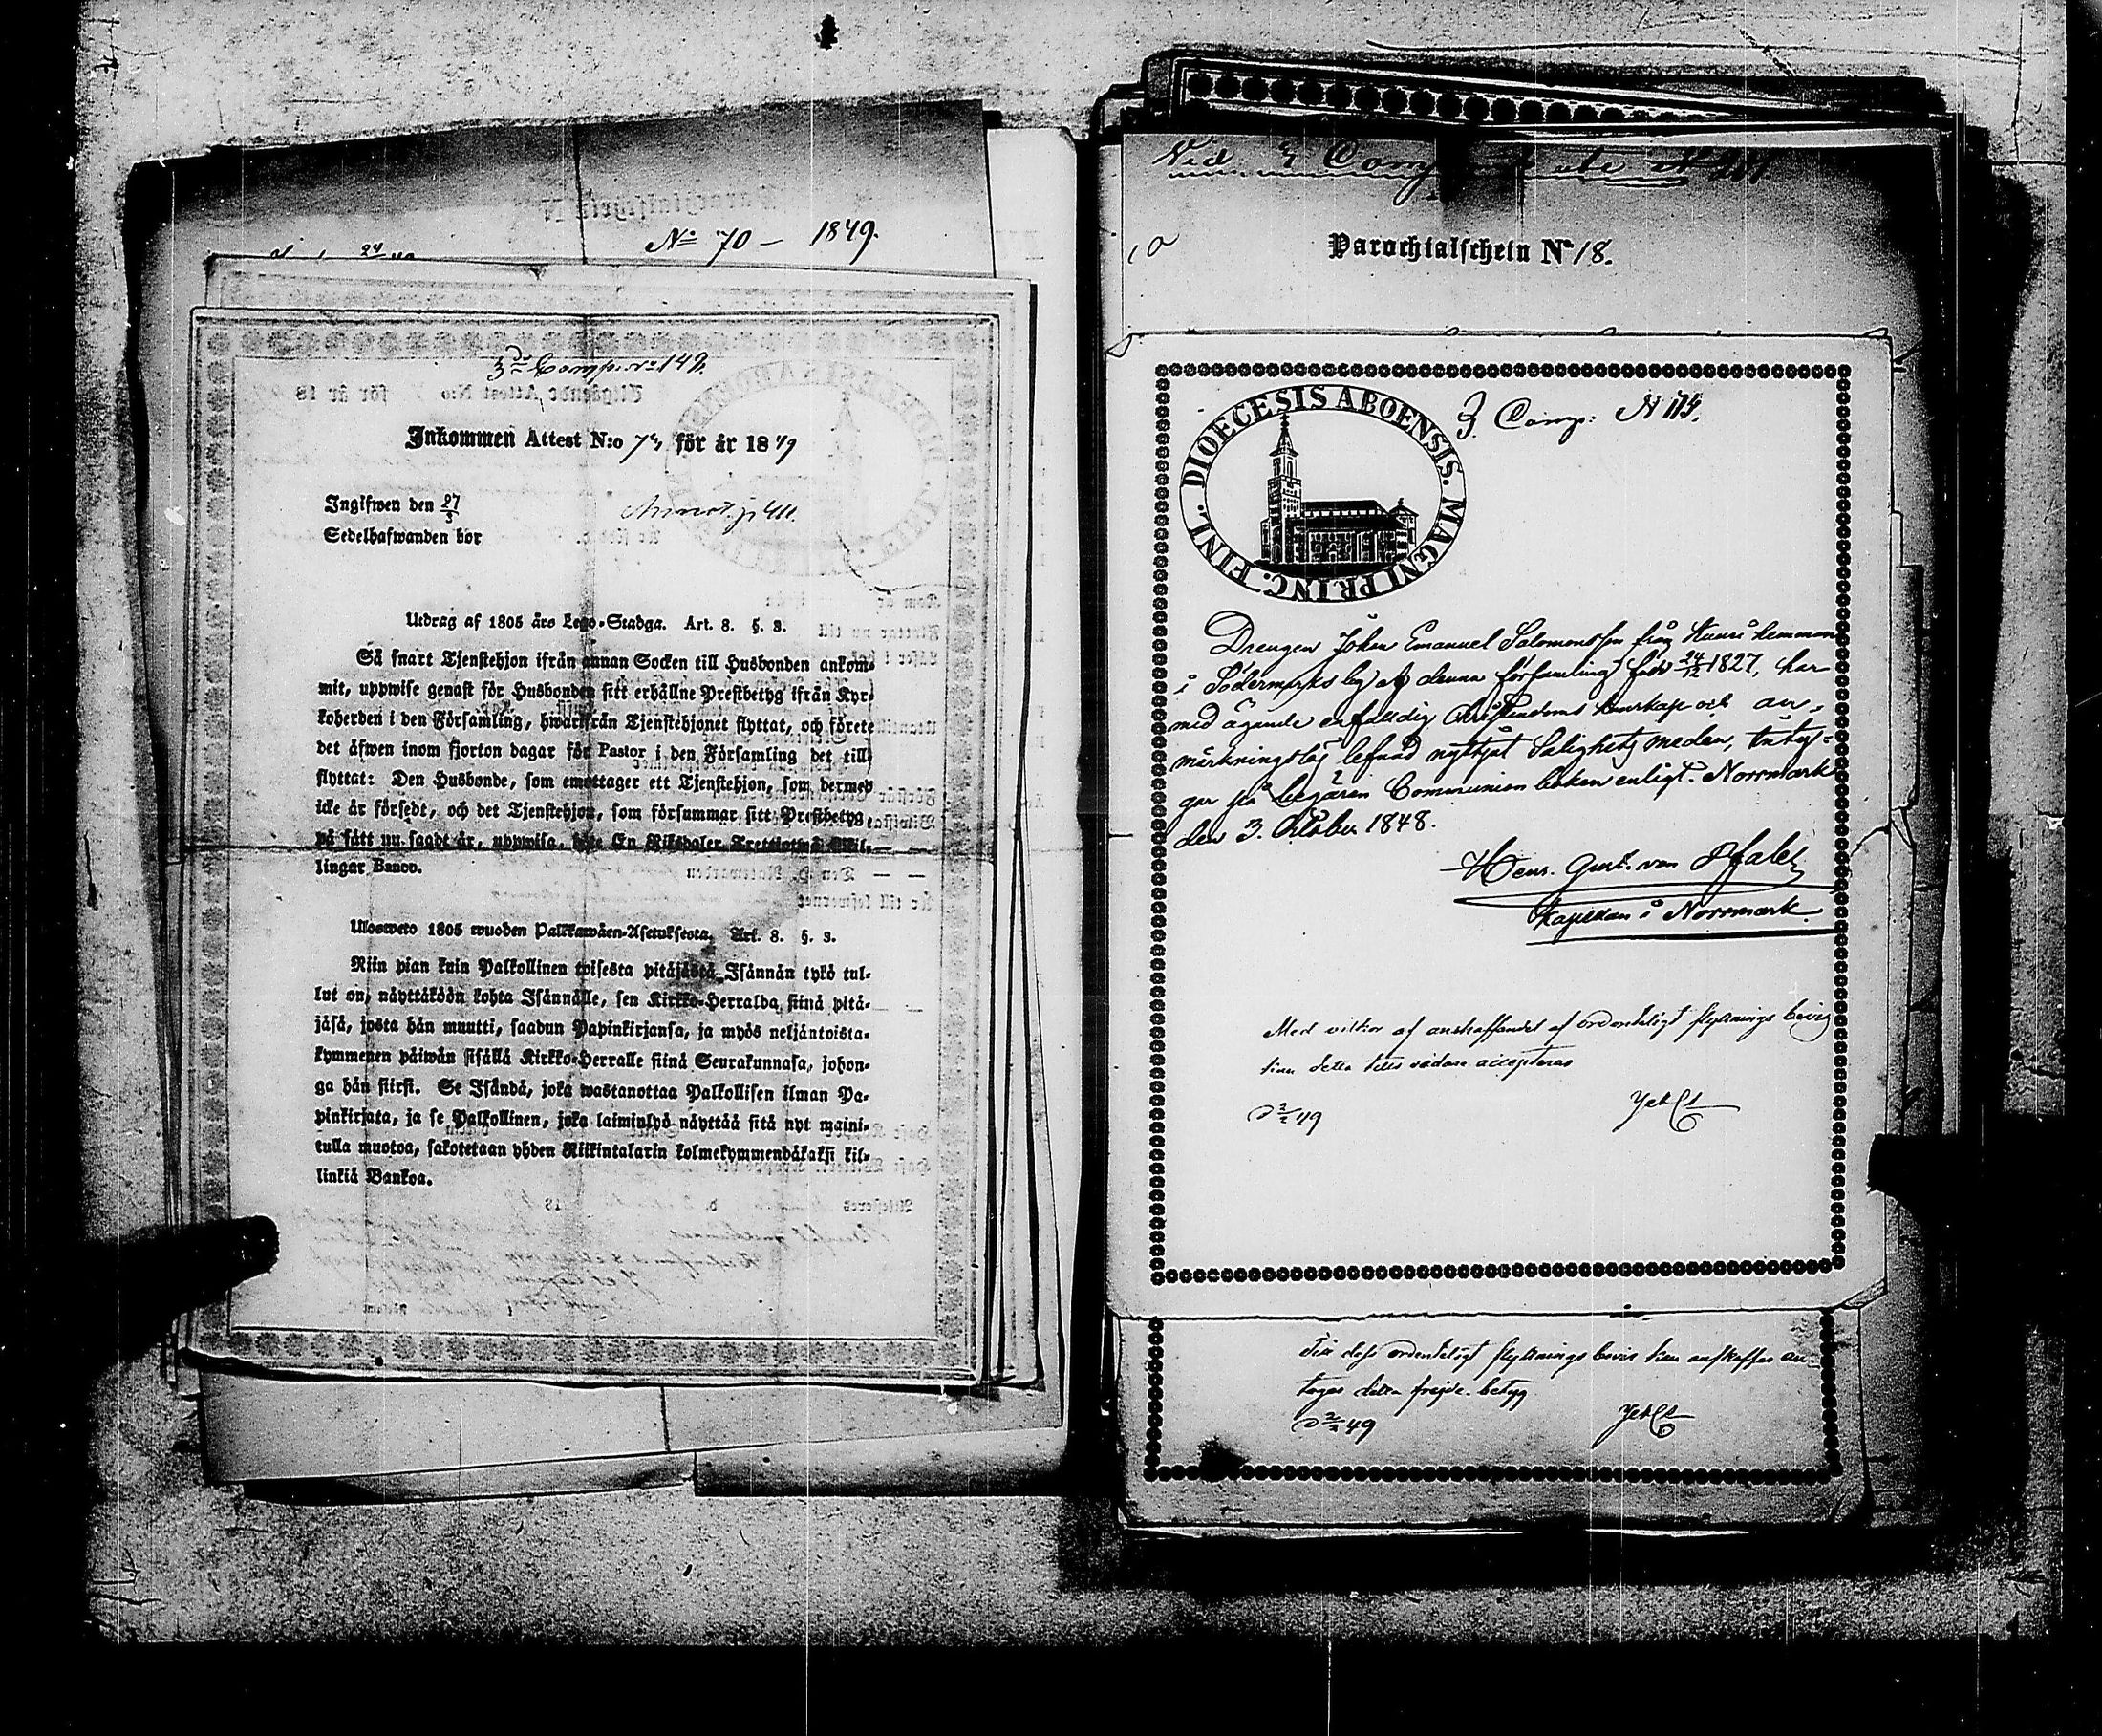 No 70 – 1849.
3de Comp. No 149.
Inkommen Attest N:o 73 för år 1849
Ingifwen den 27/3
Annot. p. 411.
Sedelhafwanden bör
Utdrag af 1805 års Lego-Stadga. Art. 8. §. 3.
Så snart Tjenstehjon ifrån annan Socken till Husbonden ankom-
mit, uppwise genast för Husbonden sitt erhållne Prestbetyg ifrån Kyr-
koherden i den Församling, hwarifrån Tjenstehjonet flyttat, och förete
det äfwen inom fjorton dagar för Pastor i den Församling det till
flyttat: Den Husbonde, som emottager ett Tjenstehjon, som dermed
icke är försedt, och det Tjenstehjon, som försummar sitt Prestbetyg,
på sätt nu sagdt är, uppwisa, böte En Riksdaler Trettiotwå Skil-
lingar Banco.
Ulosweto 1805 wuoden Palkkawäen-Asetuksesta. Art. 8. §. 3.
Niin pian kuin Palkollinen toisesta pitäjästä Isännän tykö tul-
lut on, näyttäköön kohta Isännälle, sen Kirkko-Herralda siinä pitä-
jäsä, josta hän muutti, saadun Papinkirjansa, ja myös neljäntoista-
kymmenen päiwän sisällä Kirkko-Herralle siinä Seurakunnasa, johon-
ga hän siirsi. Se Isändä, joka wastanottaa Palkollisen ilman Pa-
pinkirjata, ja se Palkollinen, joka laiminlyö näyttää sitä nyt maini-
tulla muotoa, sakotetaan yhden Riikintalarin kolmekymmendäkaksi kil-
linkiä Bankoa.
Vid 3 Comp
Parochialschein No 18.
DIOECESIS ABOENSIS. MAGNI PRINC. FINL.
3. Comp: N 175.
Drengen Johan Emanuel Salomonsson från Kuusi hemman
i Södermarks by af denna församling född 24/12 1827, har
med ägande enfaldig Christendoms kunskap och an-
märkningslös lefnad nyttjat Salighetsmedlen, betyg-
gar på begäran Communion boken enligt. Norrmark
den 3. October 1848.
Henr. Gust. von Pfaler
Kapellan i Norrmark.
Med vilkor af anskaffandet af ordenteligt flyttnings bevis
kan detta tills vidare accepteras
d 2/2 49
Till dess ordenteligt flyttnings bevis kan anskaffas an-
tages detta frejde-betyg
d 2/2 49